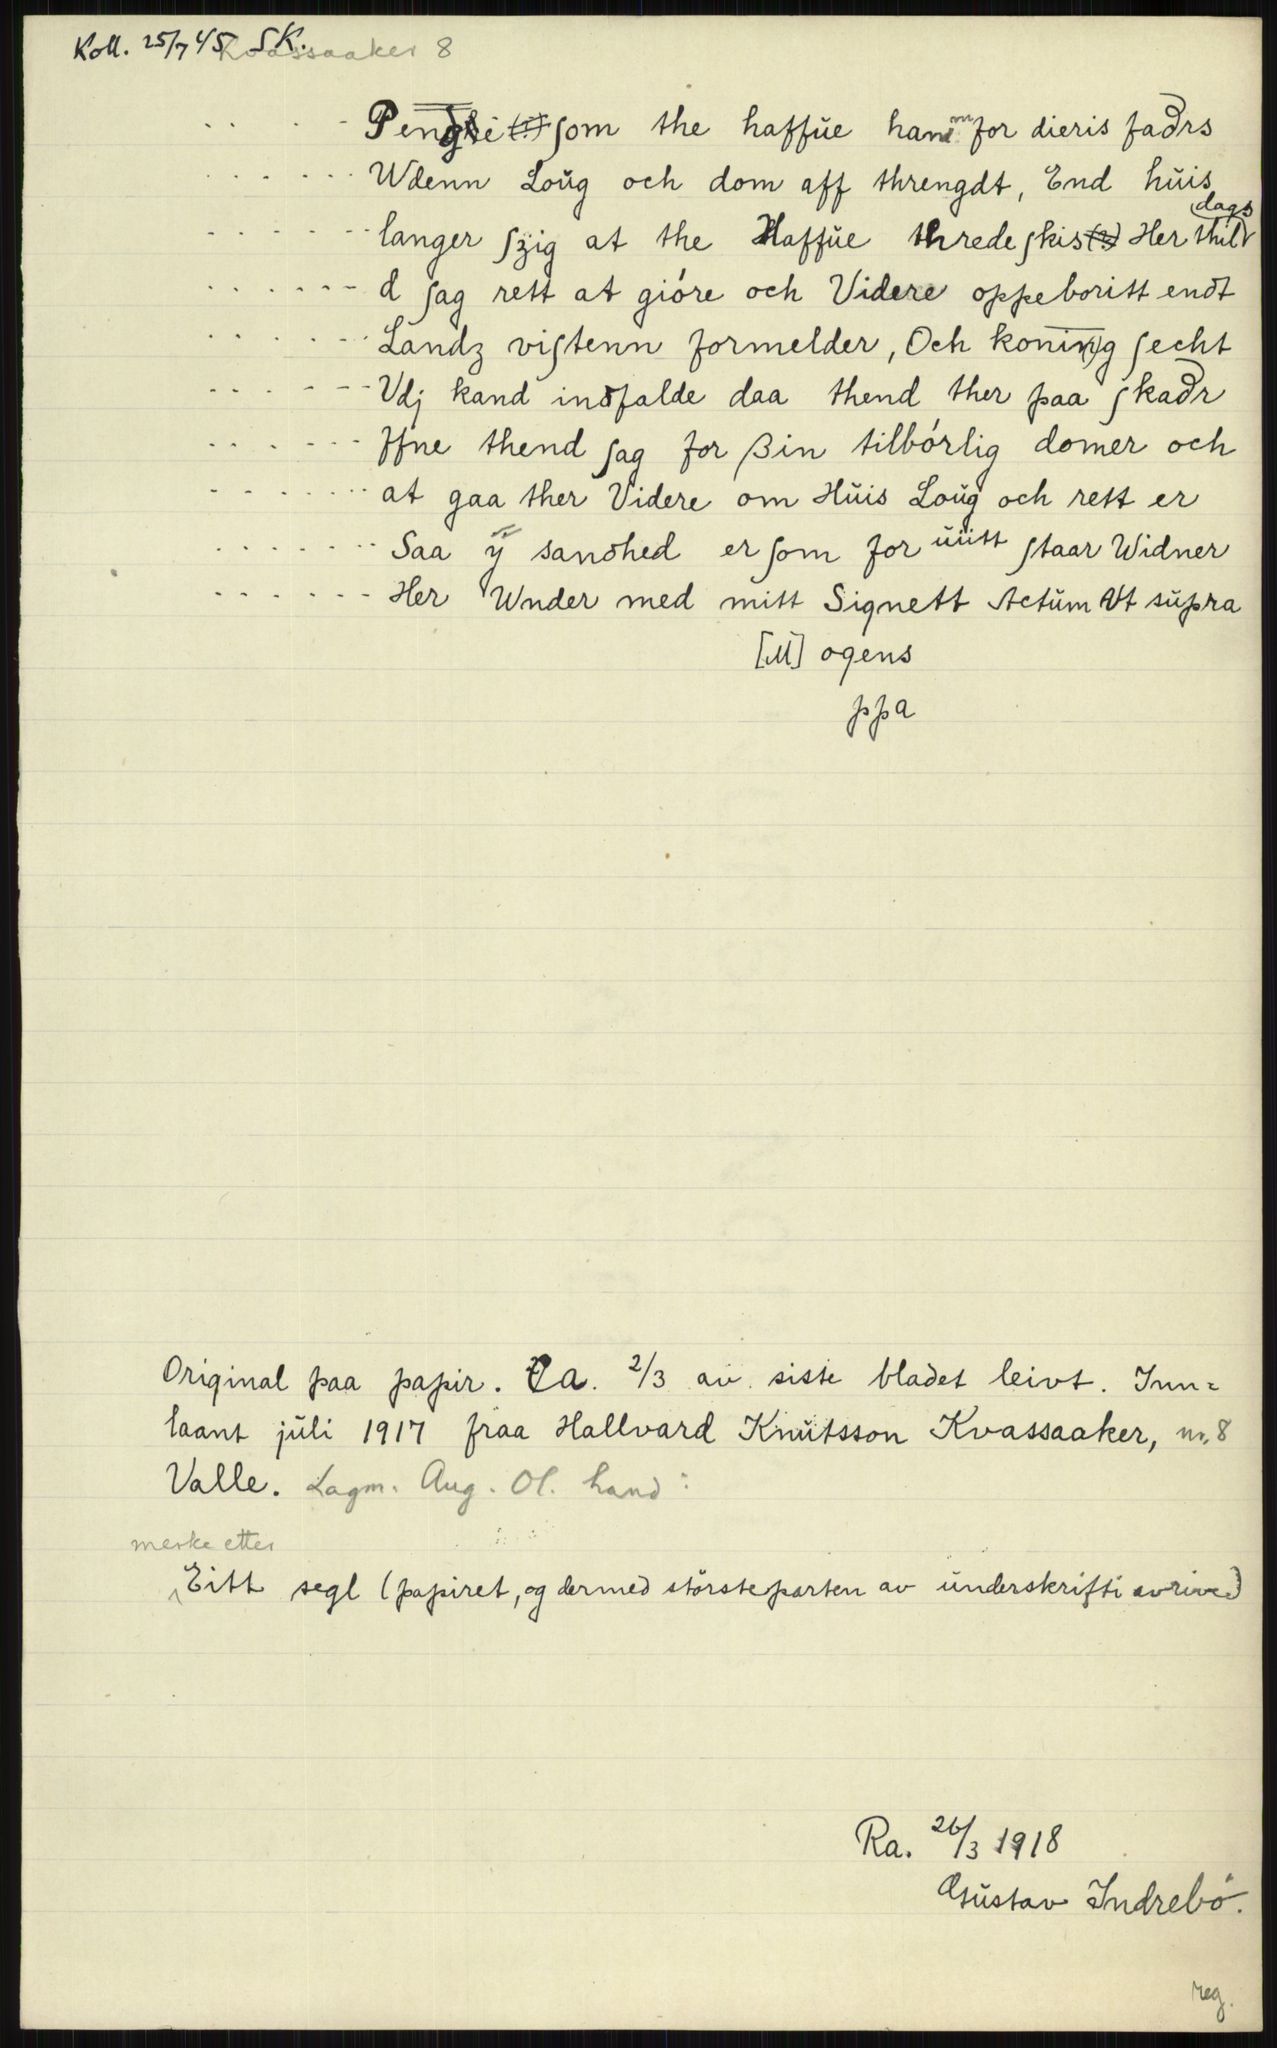 Koll. 25/7 45 SK. Kvassaaker 8
. . . . . som the haffue hanem for dieris fadrs
. . . . . . Wdenn Loug och dom aff threngdt, End huis
. . . . . . langer szig at the Haffue threde skis Her dags
. . . . . . d sag rett at gióre och Videre oppeboritt endt
. . . . . . Landz vistenn formelder, Och koning secht
. . . . . . Vdj kand indfalde daa thend ther paa skadr
. . . . . . ffne thend sag for ßin tilbórlig domer och
. . . . . . at gaa ther Videre om Huis Loug och rett er
. . . . . . Saa ÿ sandhed er som for uiitt staar Widner
. . . . . . Her Wnder med mitt Signett Actum Vt supra
[M] ogens
ppa
Original paa papir. Ca. 2/3 av siste bladet leivt. Inn=
laant juli 1917 fraa Hallvard Knutsson Kvassaaker, nr. 8
Valle. Lagm. Aug. Ol. hand:
merke etter
Eitt segl (papiret, og dermed störsteparten av underskrifti avrive)
Ra. 26/3 1918
Gustav Indrebö.
reg.